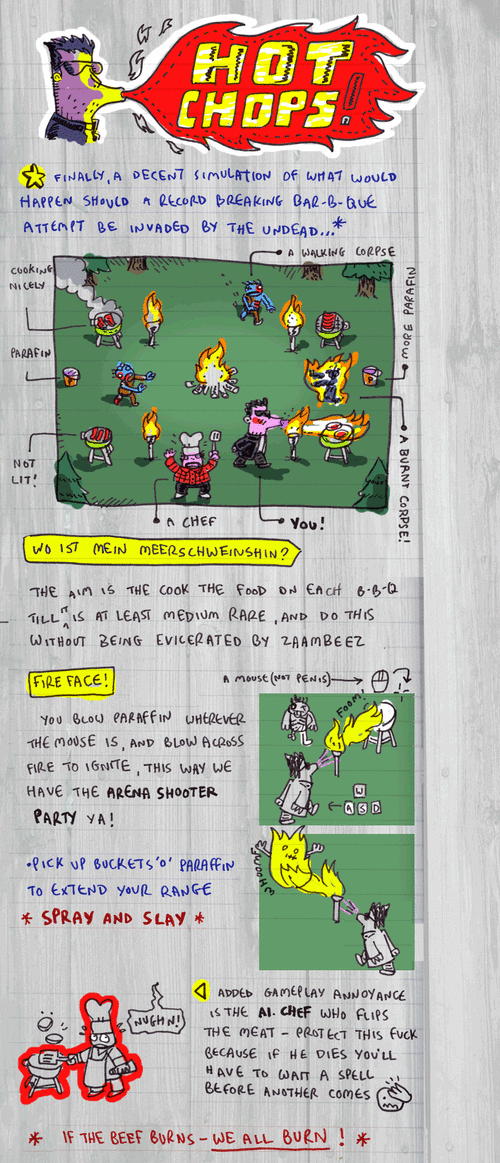 HOT
CHOPS!
FINALLY, A DECENT SIMULATION OF WHAT WOULD
HAPPEN SHOULD A RECORD BREAKING BAR-B-QUE
ATTEMPT BE INVADED BY THE UNDEAD...*
A WALKING CORPSE
COOKING
NICELY
MORE PARAFIN
PARAFIN
NOT
LIT!
A BURNT CORPSE!
A CHEF
YOU!
WO IST MEIN MEERSCHWEINSHIN?
THE AIM IS THE COOK THE FOOD ON EACH B-B-Q
TILL IT IS AT LEAST MEDIUM RARE, AND DO THIS
WITHOUT BEING EVICERATED BY ZAAMBEEZ
FIRE FACE!
A MOUSE (NOT PENIS)
YOU BLOW PARAFFIN WHEREVER
THE MOUSE IS, AND BLOW ACROSS
FIRE TO IGNITE, THIS WAY WE
HAVE THE ARENA SHOOTER
PARTY YA!
FOOM!
W
A S D
•PICK UP BUCKETS 'O' PARAFFIN
TO EXTEND YOUR RANGE
* SPRAY AND SLAY *
WHOOM
NUGHN!
ADDED GAMEPLAY ANNOYANCE
IS THE A.I. CHEF WHO FLIPS
THE MEAT - PROTECT THIS FUCK
BECAUSE IF HE DIES YOU'LL
HAVE TO WAIT A SPELL
BEFORE ANOTHER COMES
* IF THE BEEF BURNS - WE ALL BURN! *